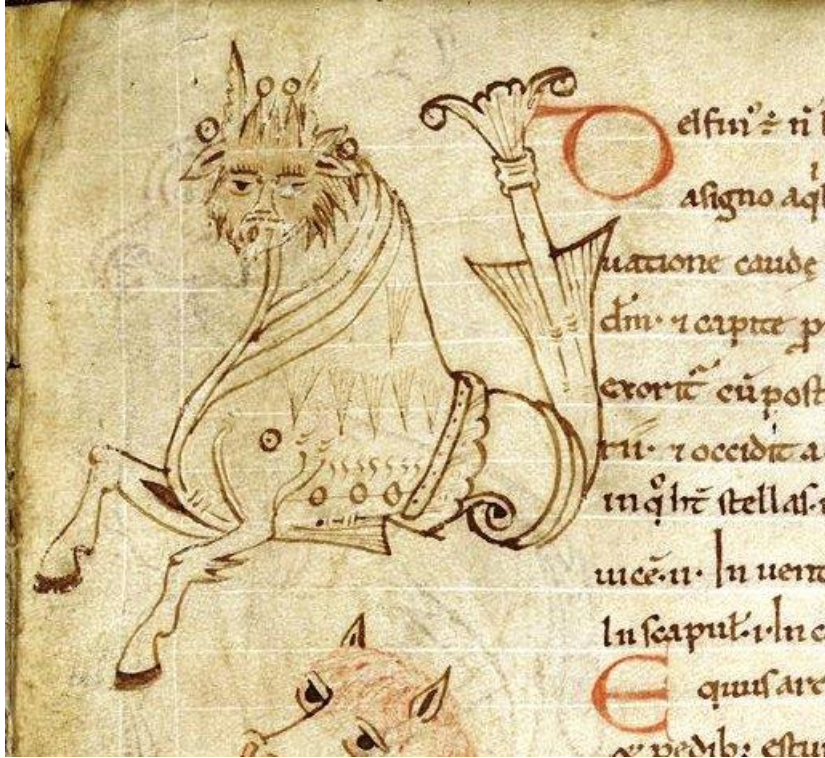 Delfin᷒ ÷ ñ
asigno aqͥ
uatione caudę
dm̄· ⁊ capite ꝓ
exorit᷑ cū post
rii· ⁊ occidit a
in qͦ hr̄ stellas·
uicē·ii· In uent
In scapul̄·i·In c
Equus are
pedib;